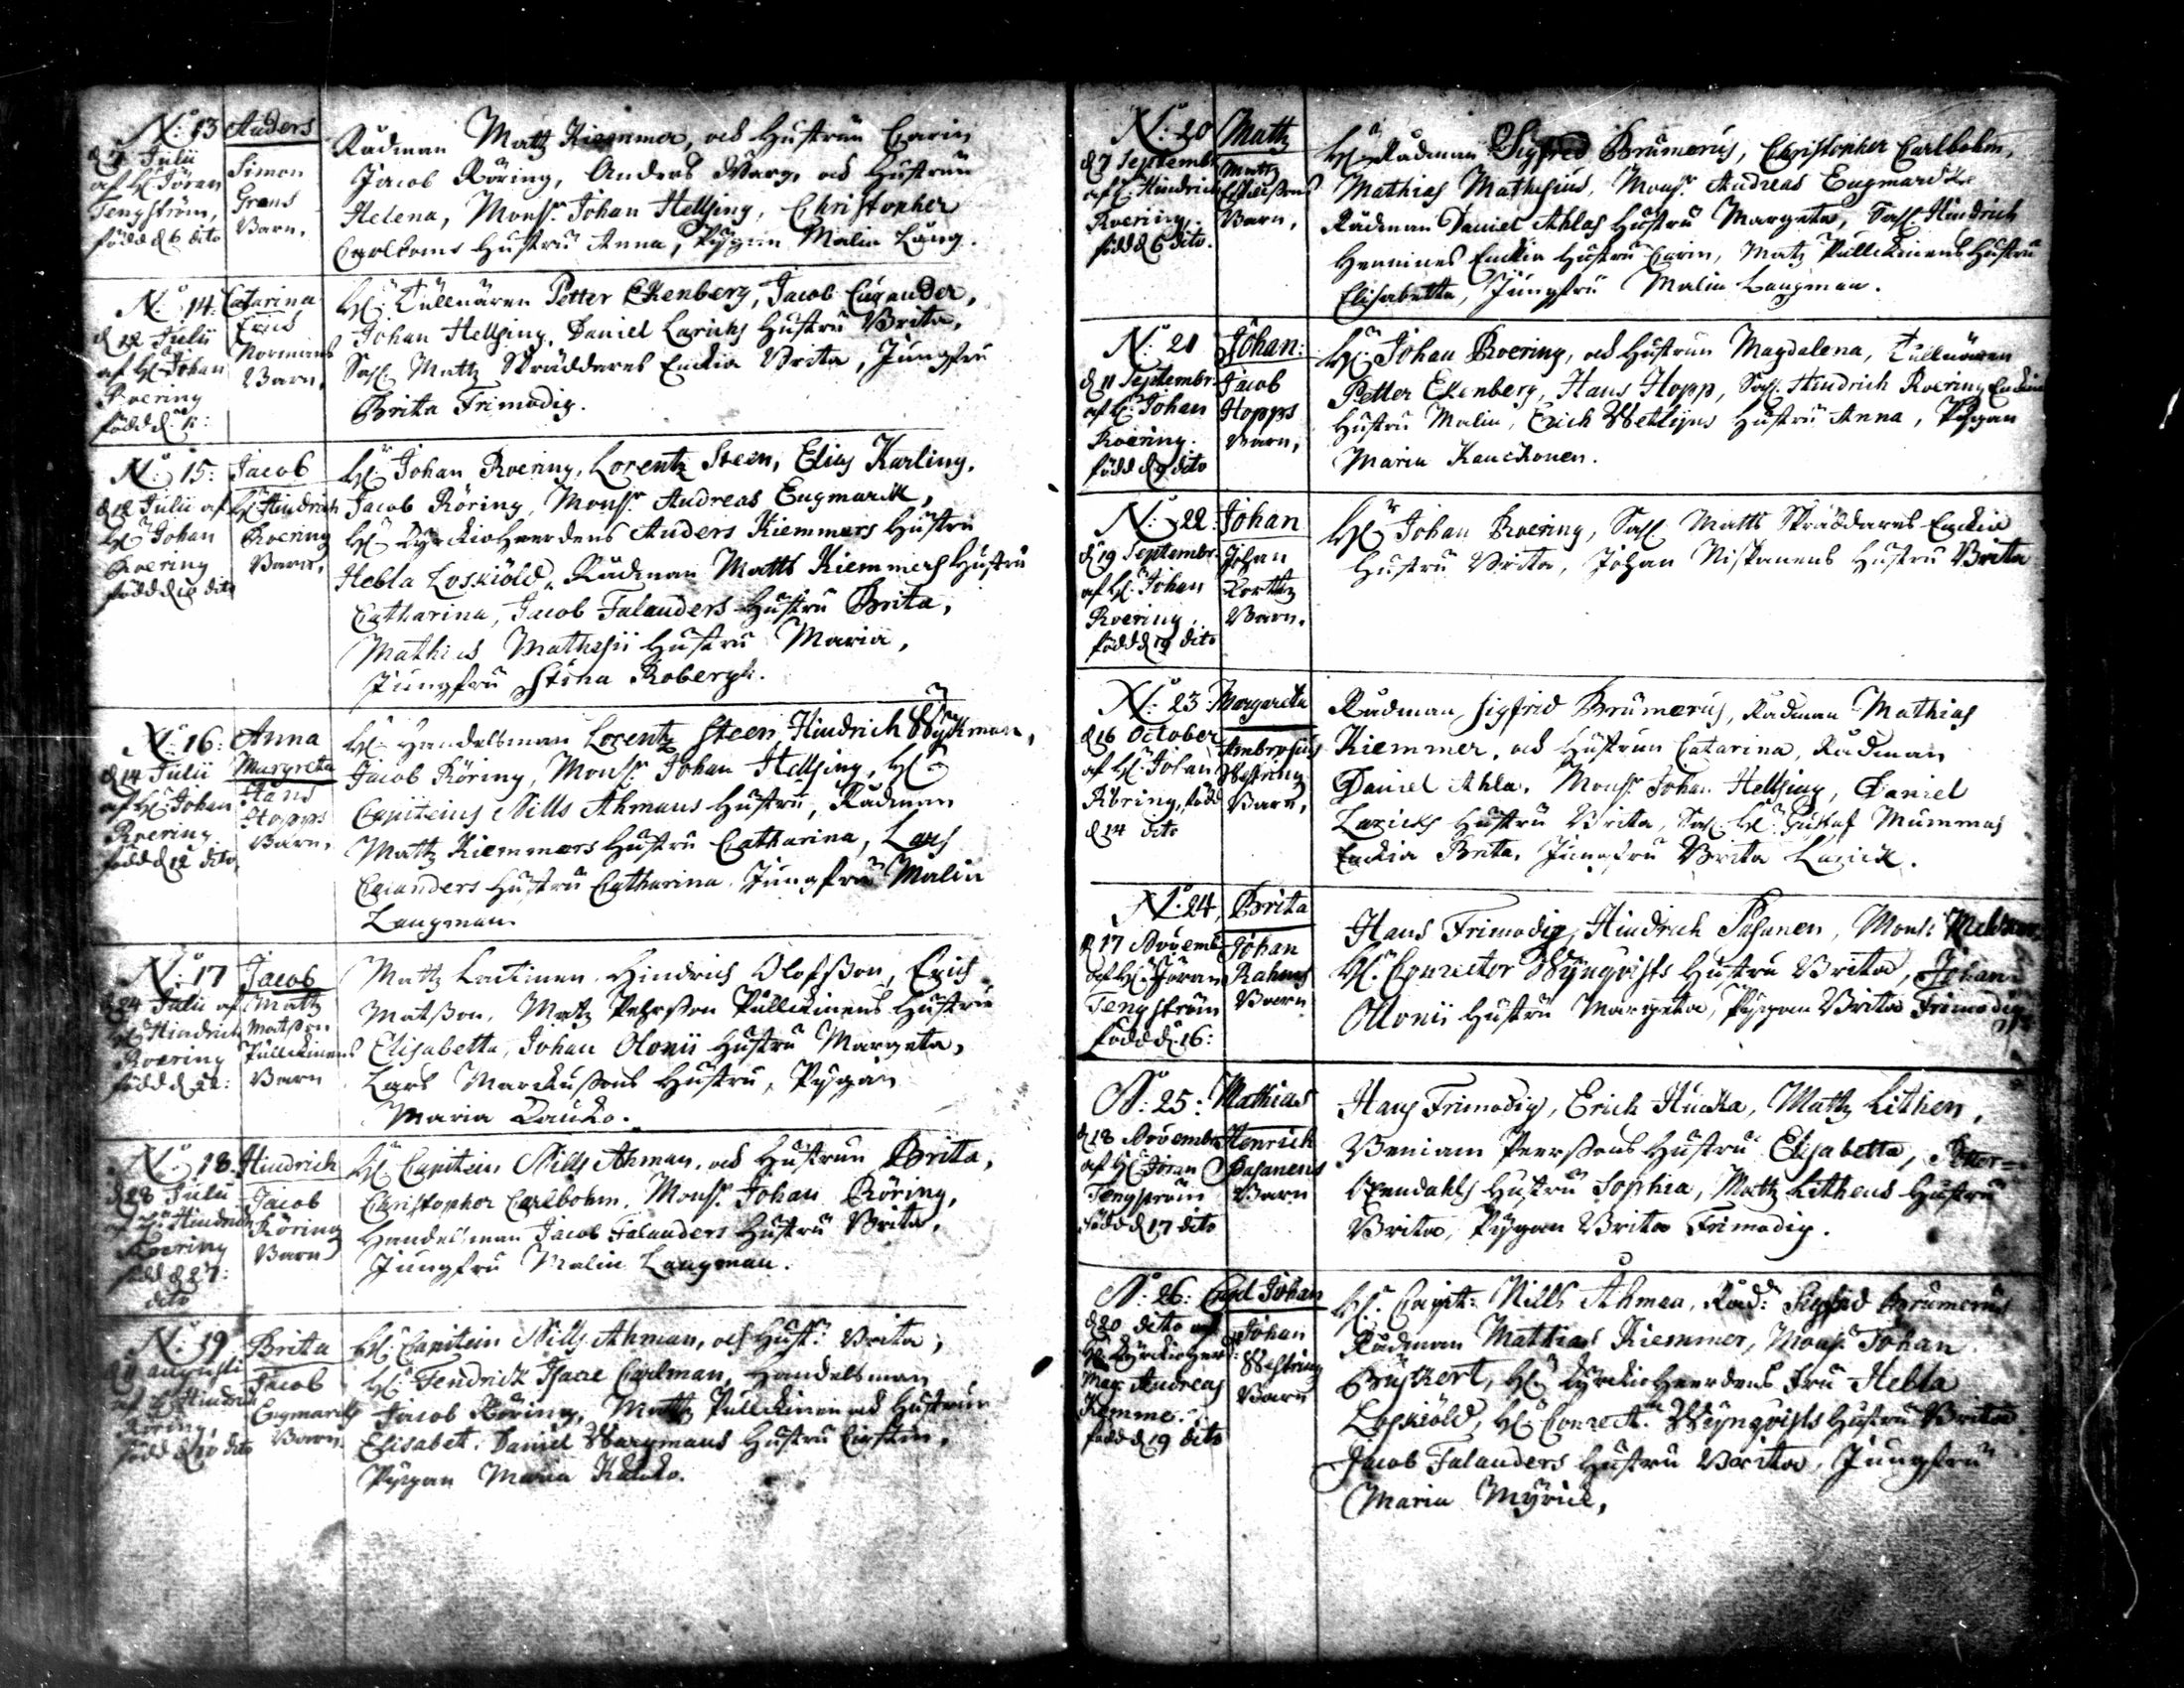 N:o 13
d 7 Julii
af H: Jöran
Tengström,
född d 6 dito
Anders
Simon
Grans
Barn.
Rådman Matz Kiemmer, och Hustrun Carin
Jacob Röring, Anders Warg, och Hustrun
Helena, Monsr. Johan Hellsing, Christopher
Carlboms Hustru Anna, Pygan Malin Lång.
N:o 14:
d 12 Julii
af H: Johan
Roering
född d. 11:
Catarina
Erics
Normans
Barn.
H: Tullnären Petter Ekenberg, Jacob Cajander,
Johan Hellsing, Daniel Larichs Hustru Brita,
Sahl: Mattz Skräddares Enckia Brita, Jungfru
Brita Frimodig.
N:o 15:
d 12 Julii af
H: Johan
Roering
född d 10 dito
Jacob
H: Hindrich
Roering
Barn.
H: Johan Roering, Lorentz Steen, Elias Karling,
Jacob Röring, Monsr. Andreas Engmarck,
H: Kyrckioheerdens Anders Kiemmers Hustru
Hebla Loskiöld, Rådman Matts Kiemmers Hustru
Catharina, Jacob Falanders Hustru Brita,
Mathias Mathesii Hustru Maria,
Jungfru Stina Robergh.
N:o 16:
d 14 Julii
af H: Johan
Roering
född d 12 dito
Anna
Margreta
Hans
Hopps
Barn.
H: Handelsman Lorentz Steen, Hindrich
Jacob Röring, Monsr. Johan Hellsing, H:
Capiteins Nills Ahmans Hustru, Rådman
Mattz Kiemmers Hustru Catharina, Lars
Cajanders Hustru Catharina, Jungfru Malin
Langman.
N:o 17
d 24 Julii af
H: Hindrich
Roering
född d 22:
Jacob
Mattz
Matsson
Pullckinens
Barn
Mattz Laitinen, Hindrich Olofsson, Erich
Matsson, Matz Pehrsson Pullckinens Hustru
Elisabetta, Johan Olonii Hustru Margeta,
Lars Marckussons Hustru, Pygan
Maria Kaucko.
N:o 18:
d 28 Julii
af H: Hindrich
Roering
född d 27:
dito
Hindrich
Jacob
Röring
Barn
H: Capitein Nills Ahman, och Hustrun Brita,
Christopher Carlbohm, Monsr. Johan Röring,
Handelsman Jacob Falanders Hustru Brita,
Jungfru Malin Langman.
N:o 19
d 11 augusti
af H: Hindrich
Röring,
född d 10 dito
Brita
Jacob
Engmarcks
Barn
H: Capitein Nills Ahman, och Hust: Brita,
H: Fendrick Isacc Carlman, Handelsman
Jacob Röring, Mattz Pullckinen och Hustrun
Elisabet, Daniel Wargmans Hustru Cirstin,
Pygan Maria Kaucko.
N:o 20
d 7 Septembr
af H: Hindrich
Roering.
född d 6 dito.
Mattz
Mattz
Barn,
H: Rådman Sigfred Brumerus, Christopher Carlbohm,
Mathias Mathesius, Monsr. Andreas Engmarck
Rådman Daniel Ahlas Hustru Margeta, Sahl: Hindrich
Hennines Enckia Hustru Carin, Matz Pullckinens Hustru
Elisabetta, Jungfru Malin Langman.
N:o 21
d 11 Septembr.
af H: Johan
Roering.
född d 9 dito
Johan:
Jacob
Hopps
Barn,
H: Johan Roering, och Hustrun Magdalena, Tullnären
Petter Ekenberg, Hans Hopp, Sahl: Hindrich Roering Enckia
Hustru Malin, Erich Hustru Anna, Pygan
Maria Kauckonen.
N:o 22:
d 19 Septembr.
af H: Johan
Roering,
född d 19 dito
Johan
Johan
Barn.
H: Johan Roering, Sahl: Matts Skräddares Enckia
Hustru Brita, Johan Niskanens Hustru Brita
N:o 23:
d 16 October
af H: Johan
Röring, född
d 14 dito
Margareta
Ambrosius
Westring
Barn,
Rådman Sigfrid Brumerus, Rådman Mathias
Kiemmer, och Hustrun Catarina, Rådman
Daniel Ahla, Monsr. Johan Hellsing, Daniel
Laricks Hustru Brita, Sahl: H: Gustaf Mummas
Enckia Brita, Jungfru Brita Larick.
N:o 24,
d 17 Novemb
af H: Jöran
Tengström
född d. 16:
Brita
Johan
Rahms
Barn
Hans Frimodig, Hindrich Pasanen, Monsr
H: Conrector Wynqvists Hustru Brita, Johan
Ollonii Hustru Margeta, Pygan Brita Frimodig
N:o 25:
d 18 Novembr
af H: Jöran
Tengström
född d 17 dito
Mathias
Henrich
Pasanens
Barn
Hans Frimodig, Erich Hucka, Mattz Lithen,
Beniam Peerssons Hustru Elisabetta, Petter
Hustru Sophia, Mattz Lithens Hustru
Brita, Pygan Brita Frimodig.
N:o 26:
d 20 dito af
H: Kyrckioheer:
Mag Andreas
Kemmer.
född d 19 dito
Carl Johan
Johan
Westring
Barn
H: Capit: Nills Ahman, Råd: Sigfrid Brumerus
Rådman Mathias Kiemmer, Monsr. Johan
H: Kyrckioheerdens Fru Hebla
Loskiöld, H: Conrect: Wynqvists Hustru Brita
Jacob Falanders Hustru Brita, Jungfru
Maria Myrick,